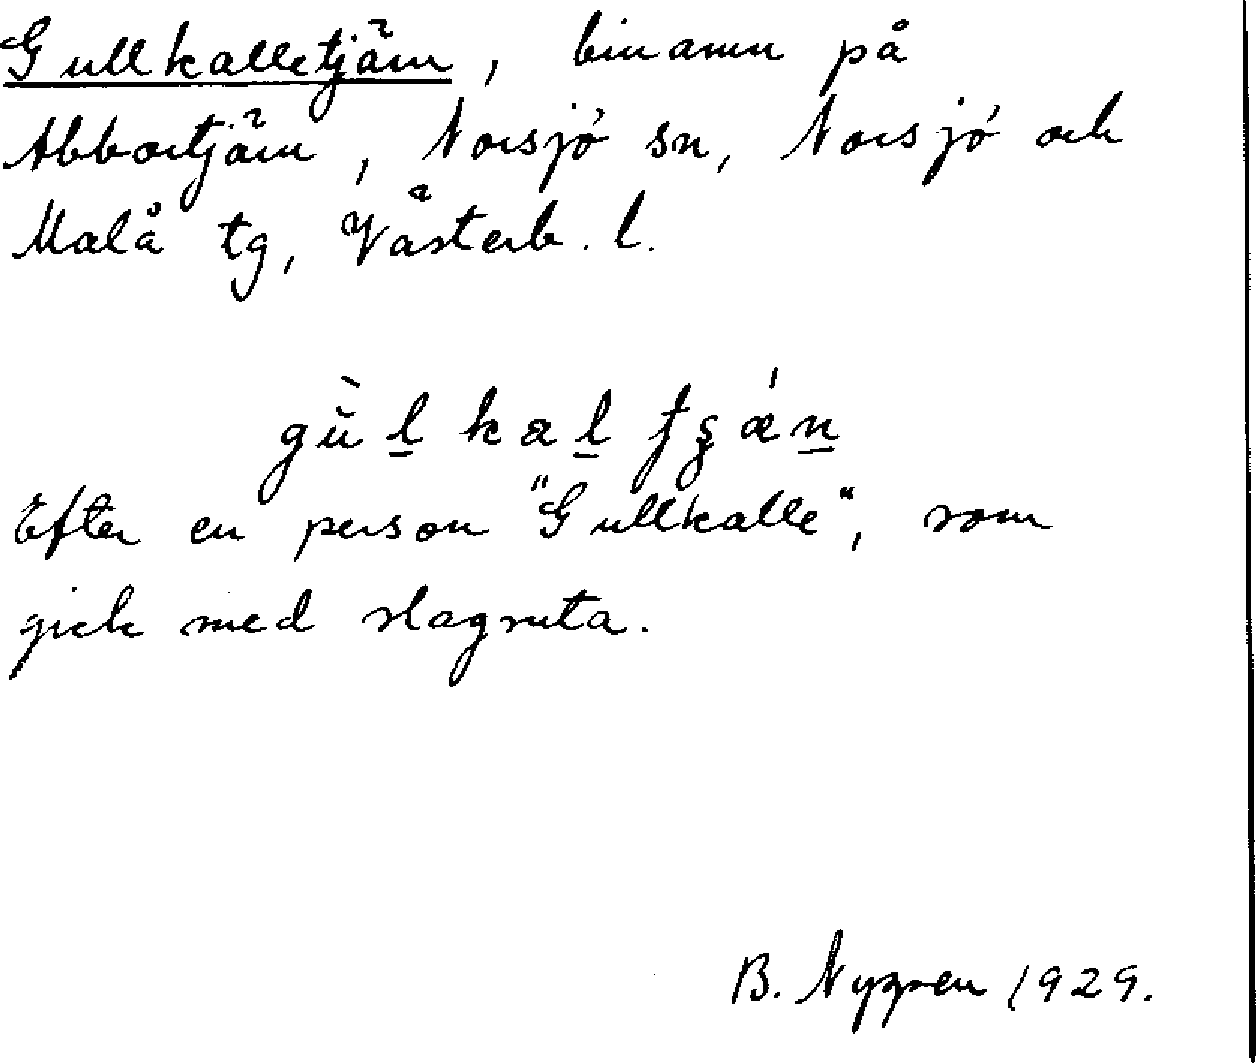 Gullkalletjärn, binamn på
Abbortjärn, Norsjö sn, Norsjö och
Malå tg, Västerb. l.
gùl̲ kal̲ tʂǽn̲
Efter en person "Gullkalle", som
gick med slagruta.
B. Nygren 1929.